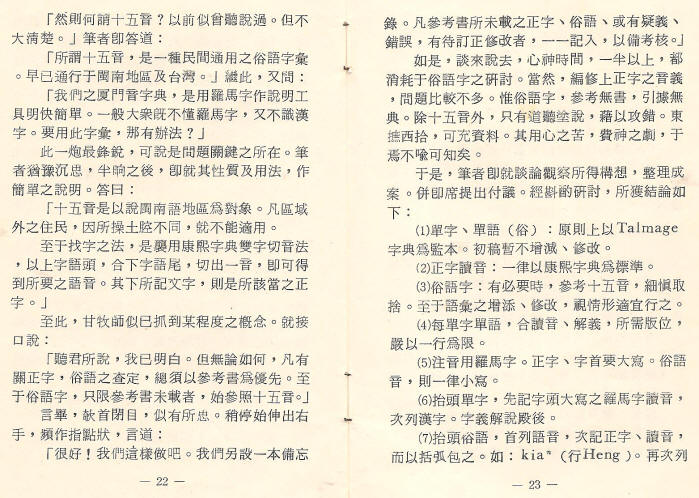 「然則何謂十五音？以前似曾聽說過。但不
大淸楚。」筆者卽答道：
「所謂十五音，是一種民間通用之俗語字彙
。早已通行于閩南地區及台灣。」繼此，又問：
「我們之厦門音字典，是用羅馬字作說明工
具明快簡單。一般大衆旣不懂羅馬字，又不識漢
字。要用此字彙，那有辦法？」
此一炮最鋒銳，可說是問題關鍵之所在。筆
者猶豫沉思，半晌之後，卽就其性質及用法，作
簡單之說明。答曰：
「十五音是以說閩南語地區爲對象。凡區域
外之住民，因所操土腔不同，就不能適用。
至于找字之法，是襲用康熙字典雙字切音法
，以上字語頭，合下字語尾，切出一音，卽可得
到所要之語音。其下所記文字，則是所該當之正
字。」
至此，甘牧師似已抓到某程度之槪念。就接
口說：
「聽君所說，我已明白。但無論如何，凡有
關正字，俗語之查定，總須以參考書爲優先。至
于俗語字，只限參考書未載者，始參照十五音。」
言畢，欹首閉目，似有所思。稍停始伸出右
手，頻作指點狀，言道：
「很好！我們這樣做吧。我們另設一本備忘
— 22 —
錄。凡參考書所未載之正字、俗語、或有疑義、
錯誤，有待訂正修改者，一一記入，以備考核。」
如是，談來說去，心神時間，一半以上，都
消耗于俗語字之硏討。當然，編修上正字之音義
，問題比較不多。惟俗語字，參考無書，引據無
典。除十五音外，只有道聽塗說，藉以攻錯。東
摭西拾，可充資料。其用心之苦，費神之劇，于
焉不喩可知矣。
于是，筆者卽就談論觀察所得構想，整理成
案。併卽席提出付議。經斟酌硏討，所獲結論如
下：
⑴單字、單語（俗）：原則上以Talmage
字典爲監本。初稿暫不增減、修改。
⑵正字讀音：一律以康熙字典爲標準。
⑶俗語字：有必要時，參考十五音，細愼取
捨。至于語彙之增添、修改，視情形適宜行之。
⑷每單字單語，合讀音、解義，所需版位，
嚴以一行爲限。
⑸注音用羅馬字。正字、字首要大寫。俗語
音，則一律小寫。
⑹抬頭單字，先記字頭大寫之羅馬字讀音，
次列漢字。字義解說殿後。
⑺抬頭俗語，首列語音，次記正字、讀音，
而以括弧包之。如：kiaⁿ（行Heng）。再次列
— 23 —